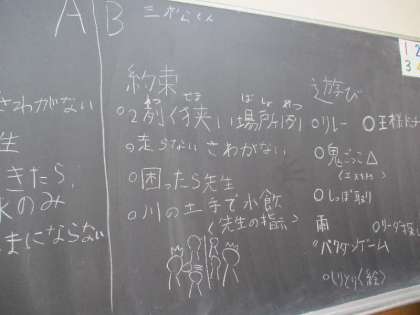 A B
さわがない
生
きたら、
水のみ
まにならない
約束
○2列く狭い場所1列
○走らない さわがない
○困ったら先生
○川の土手で水飲
＜先生の指示＞
遊び
○リレー ○王様
○鬼ごっこ△
○しっぽ取り
雨
バクダンゲーム
○しりとり＜絵＞
1 2
3